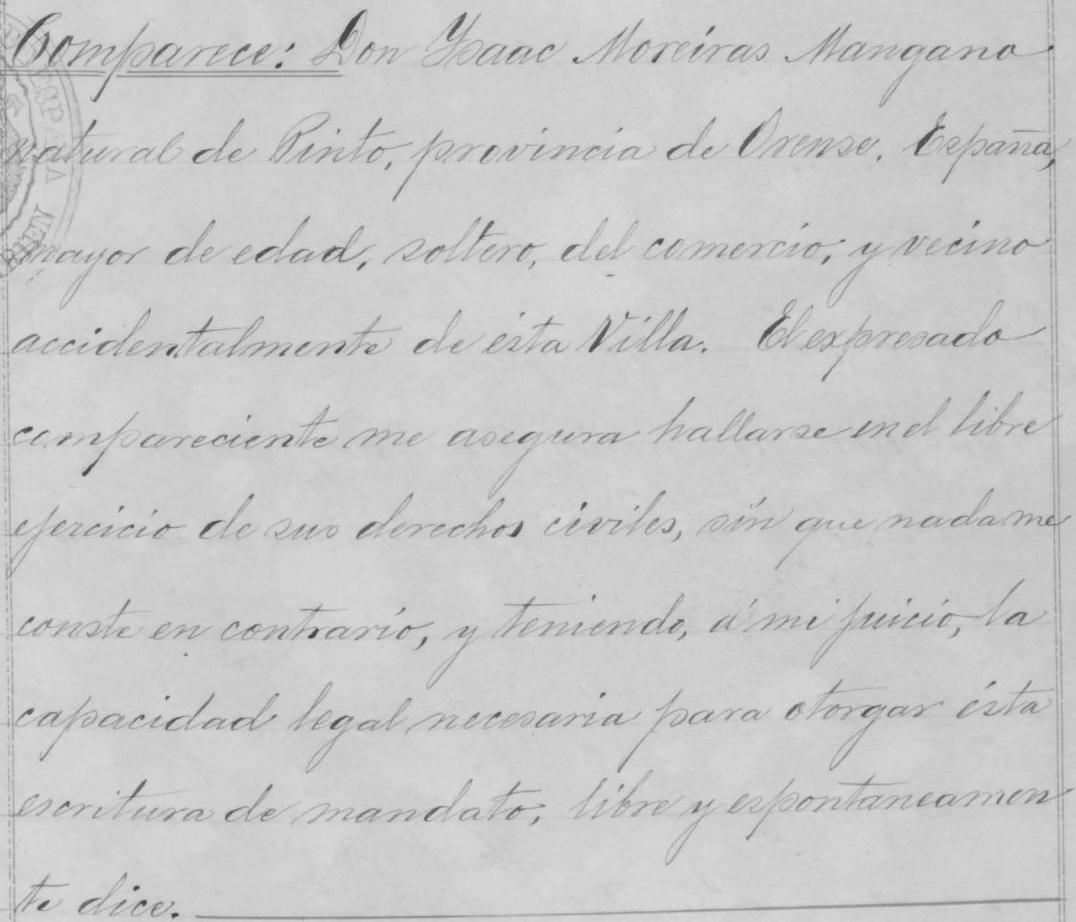 Comparece: Don Ysaac Moreiras Mangano
natural de Pinto, provincia de Orense. España,
mayor de edad, soltero, del comercio; y vecino
accidentalmente de ésta Villa. El expresado
compareciente me asegura hallarse en el libre
ejercicio de sus derechos civiles, sin que nada me
conste en contrario, y teniendo, á mi juicio, la
capacidad legal necesaria para otorgar ésta
escritura de mandato; libre y espontaneamen
te dice.